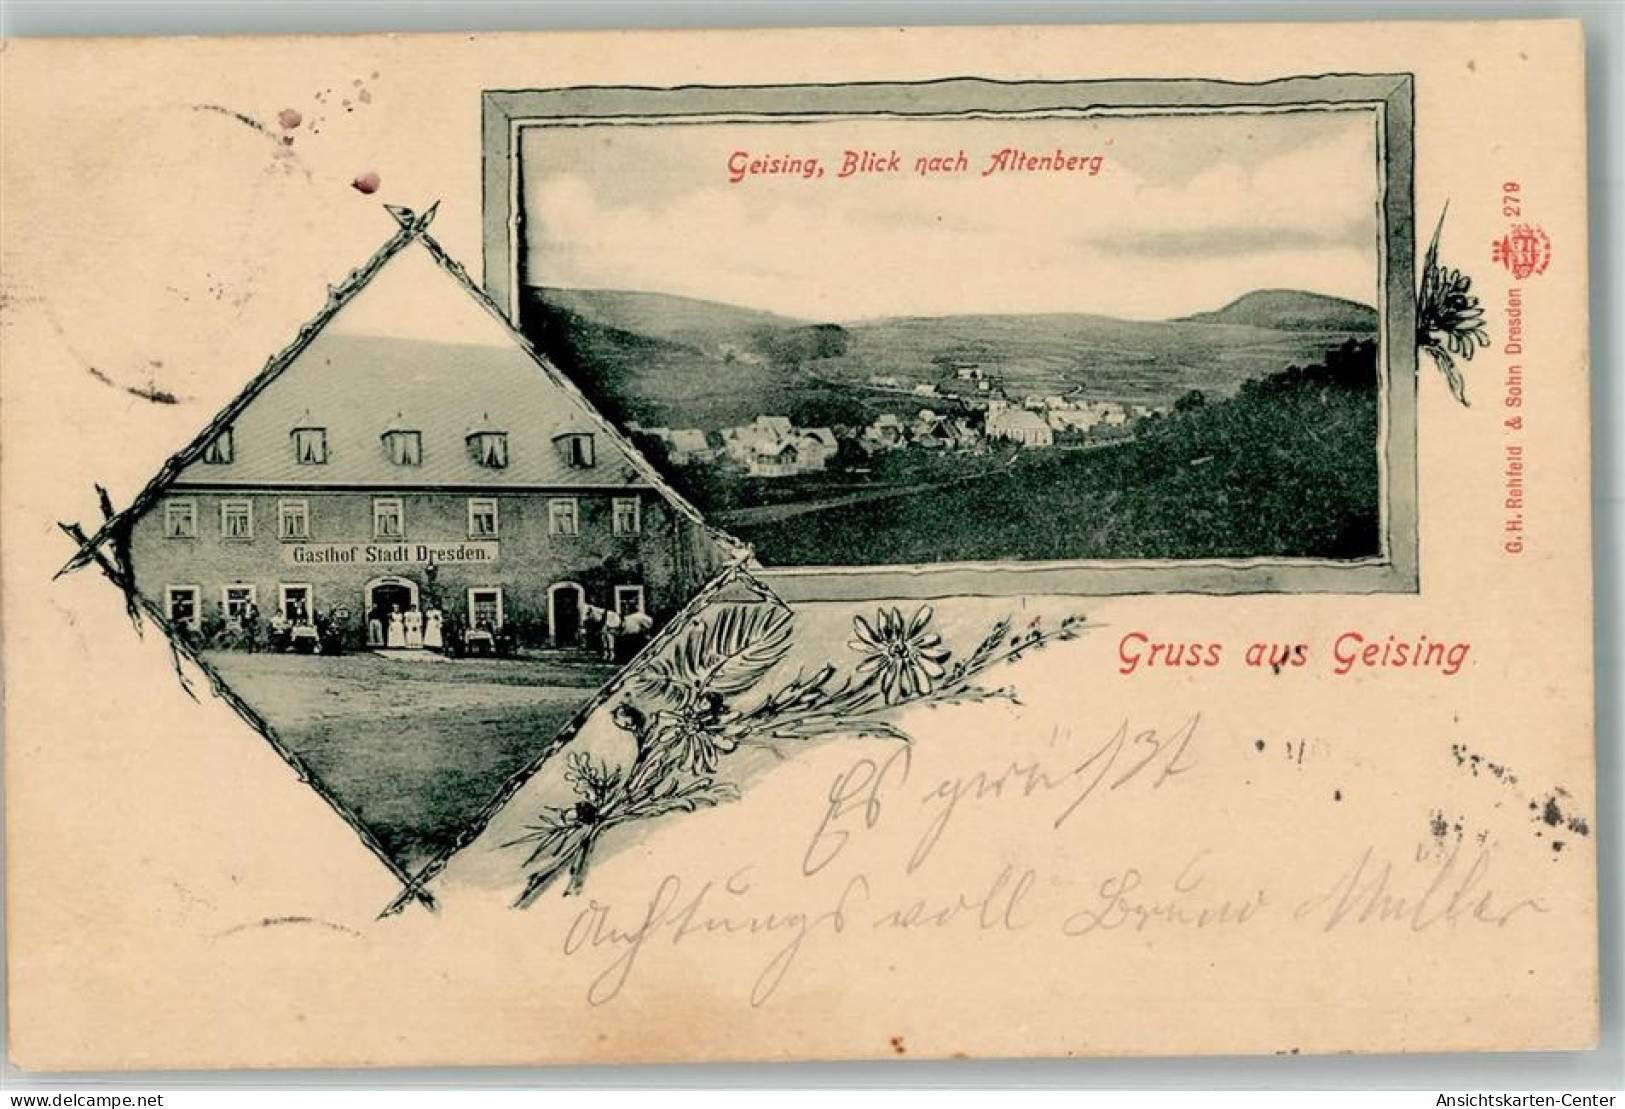 Geising, Blick nach Altenberg
Gasthof Stadt Dresden.
Gruss aus Geising.
G. H. Rehfeld & Sohn Dresden 279
Es grüßt
Achtungsvoll Bruno Müller
Ansichtskarten-Center
www.delcampe.net